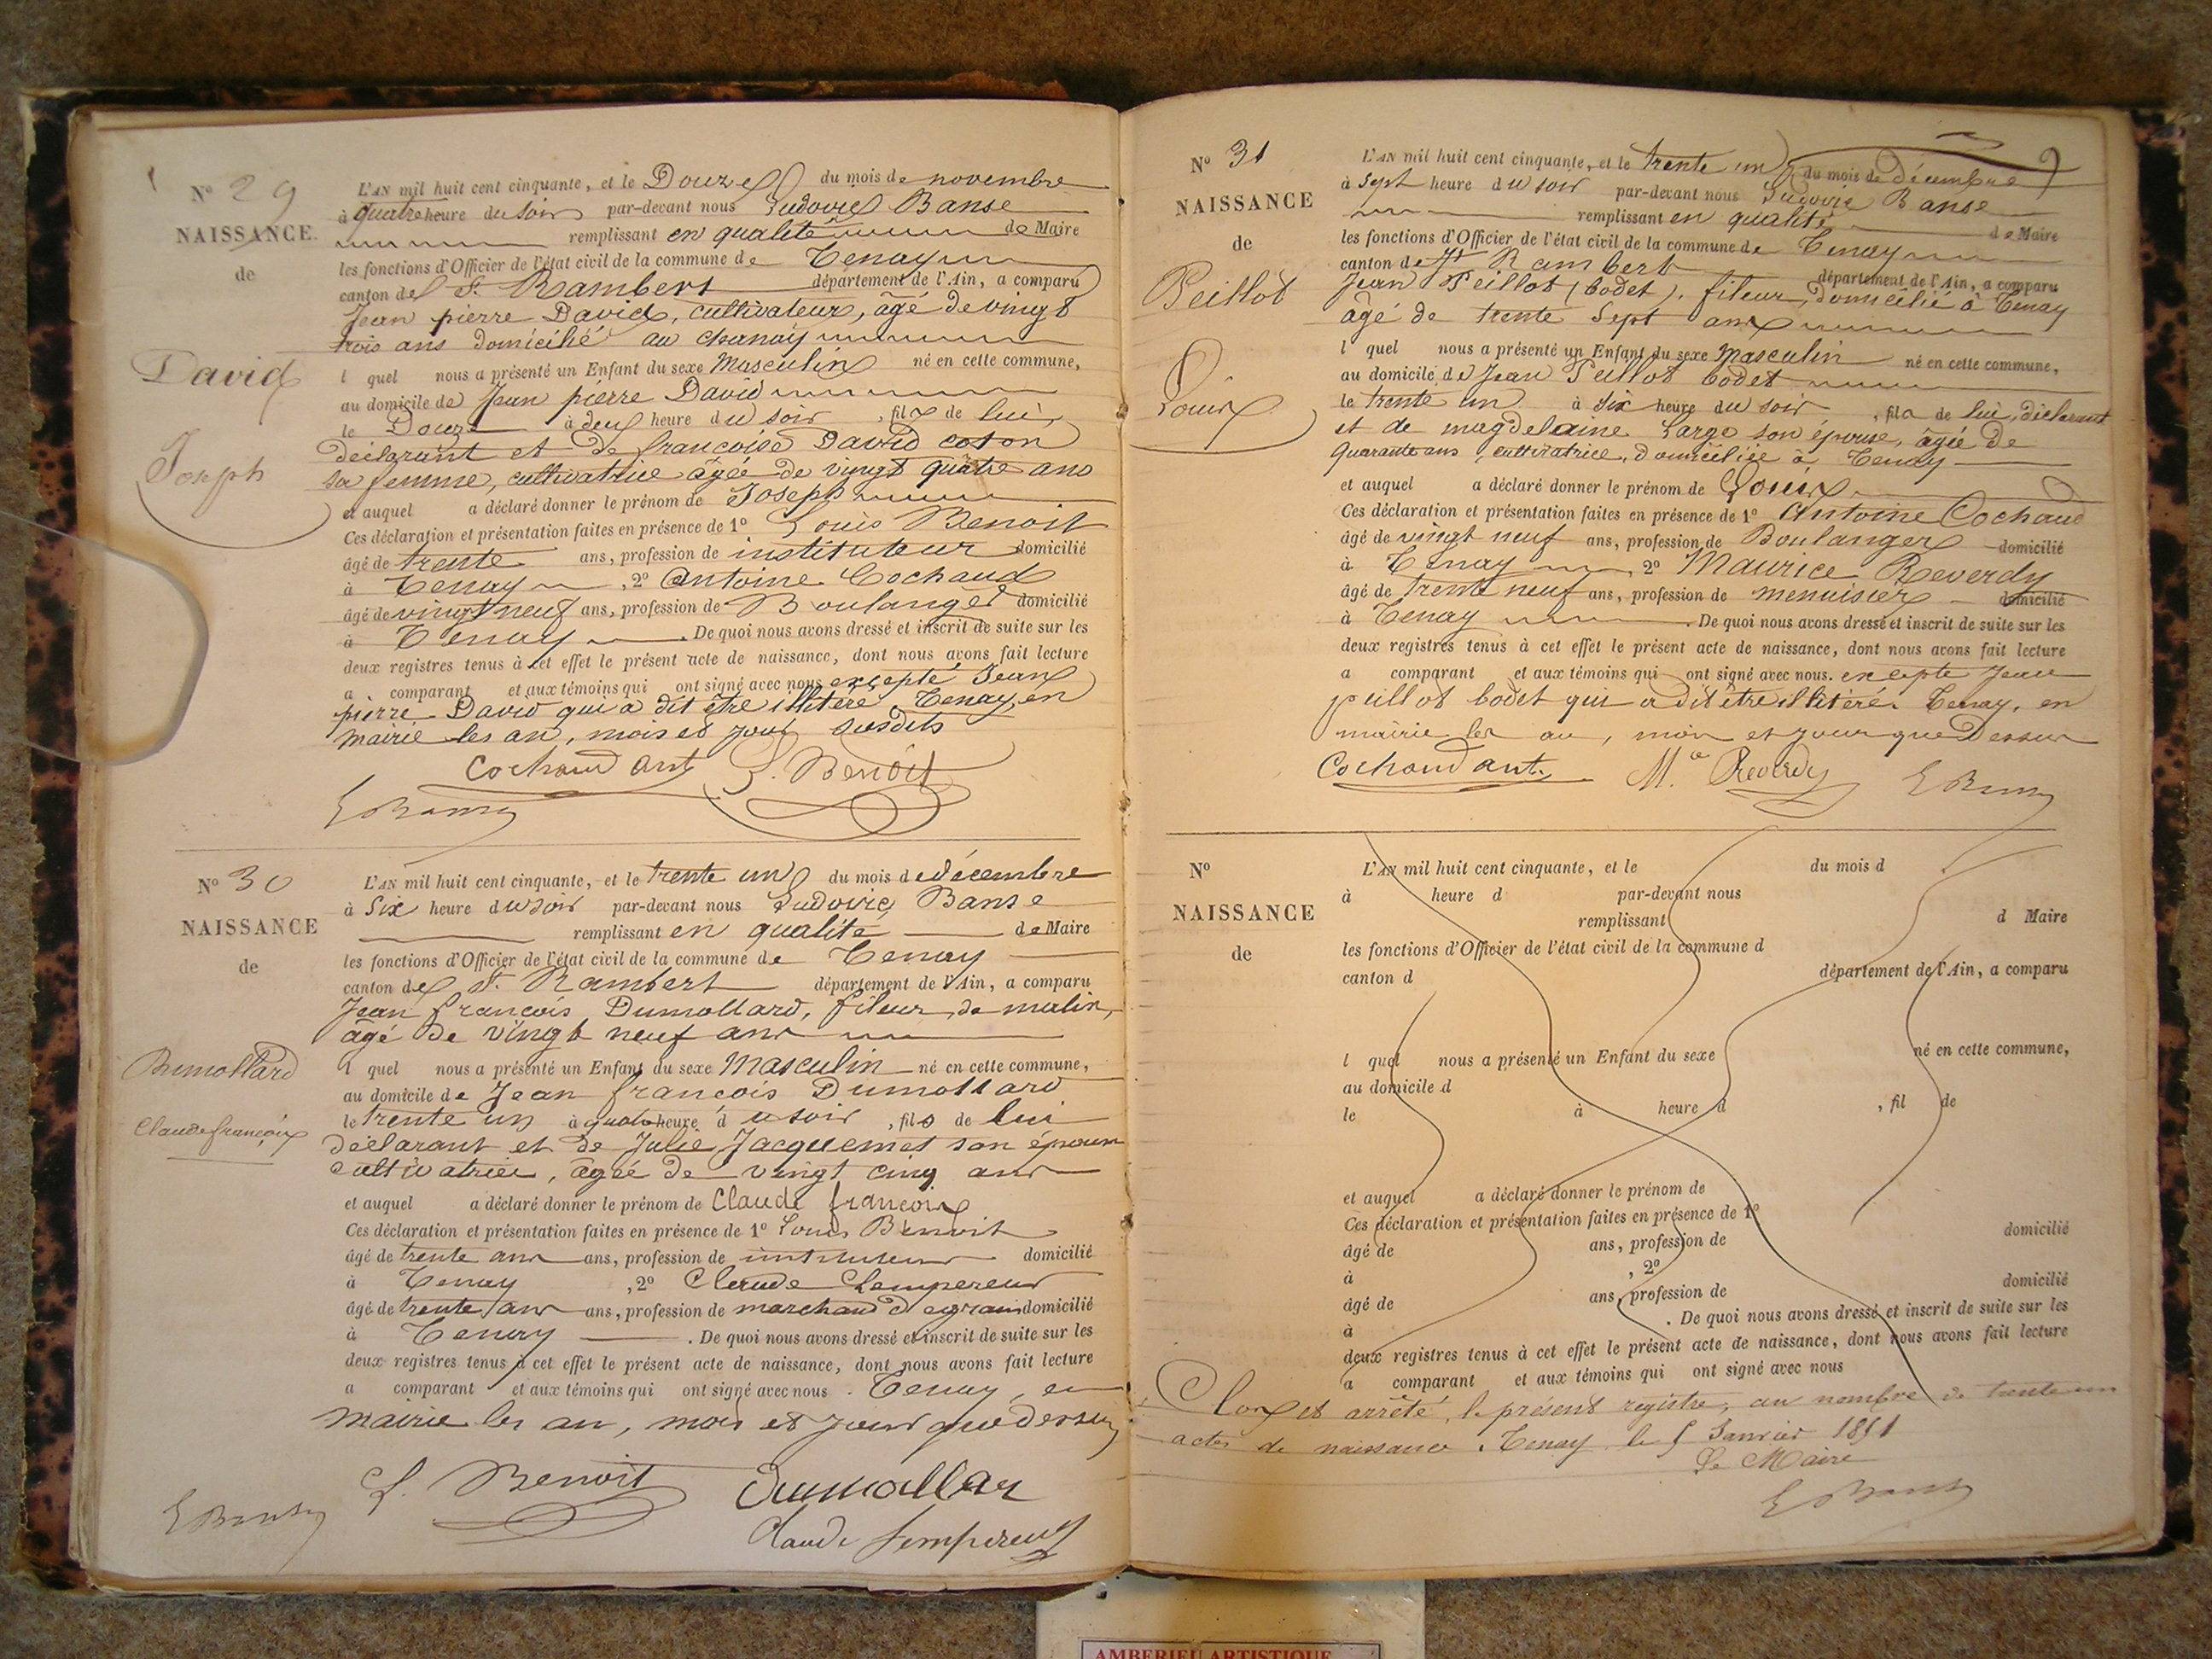 N° 29
NAISSANCE
de
David
Joseph
L'AN mil huit cent cinquante, et le Douze du mois de novembre
à quatre heure du soir par-devant nous Ludovic Banse
remplissant en qualité de Maire
les fonctions d'Officier de l'état civil de la commune de Tenay
canton de St Rambert département de l'Ain, a comparu
Jean pierre David, cultivateur, âgé de vingt
trois ans domicilié au chanay
l quel nous a présenté un Enfant du sexe Masculin né en cette commune,
au domicile de Jean pierre David
le Douze à deux heure du soir, fils de lui,
déclarant et de françoise David coton
sa femme, cultivatrice âgée de vingt quatre ans
et auquel a déclaré donner le prénom de Joseph
Ces déclaration et présentation faites en présence de 1° Louis Benoit
âgé de trente ans, profession de instituteur domicilié
à Tenay, 2° Antoine Cochaud
âgé de vingt neuf ans, profession de Boulanger domicilié
à Tenay. De quoi nous avons dressé et inscrit de suite sur les
deux registres tenus à cet effet le présent acte de naissance, dont nous avons fait lecture
a comparant et aux témoins qui ont signé avec nous excepté Jean
pierre David qui a dit être illitéré. Tenay, en
mairie les an, mois et jour susdits
Cochaud ant L. Benoit
L Banse
N° 30
NAISSANCE
de
Dumollard
Claude françois
L'AN mil huit cent cinquante, et le trente un du mois de décembre
à Six heure du soir par-devant nous Ludovic Banse
remplissant en qualité de Maire
les fonctions d'Officier de l'état civil de la commune de Tenay
canton de St. Rambert département de l'Ain, a comparu
Jean françois Dumollard, fileur, de
âgé de vingt neuf ans
l quel nous a présenté un Enfant du sexe Masculin né en cette commune,
au domicile de Jean françois Dumollard
le trente un à quatre heure du soir, fils de lui
déclarant et de Julie Jacquemet son épouse
cultivatrice, âgée de vingt cinq ans
et auquel a déclaré donner le prénom de Claude françois
Ces déclaration et présentation faites en présence de 1° Louis Benoit
âgé de trente ans ans, profession de instituteur domicilié
à Tenay, 2° Claude Lempereur
âgé de trente ans ans, profession de marchand de grain domicilié
à Tenay. De quoi nous avons dressé et inscrit de suite sur les
deux registres tenus à cet effet le présent acte de naissance, dont nous avons fait lecture
a comparant et aux témoins qui ont signé avec nous. Tenay, en
mairie les an, mois et jour que dessus
L. Benoit Dumollar
L Banse
Claude Lempereur
N° 31
NAISSANCE
de
Peillot
Louis
L'AN mil huit cent cinquante, et le trente un du mois de décembre
à Sept heure du soir par-devant nous Ludovic Banse
remplissant en qualité de Maire
les fonctions d'Officier de l'état civil de la commune de Tenay
canton de St Rambert département de l'Ain, a comparu
Jean Peillot (bodet), fileur, domicilié à Tenay
âgé de trente sept ans
l quel nous a présenté un Enfant du sexe Masculin né en cette commune,
au domicile de Jean Peillot bodet
le trente un à six heure du soir, fils de lui, déclarant
et de magdelaine Large son épouse, âgée de
quarante ans, cultivatrice, domiciliée à Tenay
et auquel a déclaré donner le prénom de Louis
Ces déclaration et présentation faites en présence de 1° Antoine Cochaud
âgé de vingt neuf ans, profession de Boulanger domicilié
à Tenay, 2° Maurice Reverdy
âgé de trente neuf ans, profession de menuisier domicilié
à Tenay. De quoi nous avons dressé et inscrit de suite sur les
deux registres tenus à cet effet le présent acte de naissance, dont nous avons fait lecture
a comparant et aux témoins qui ont signé avec nous. excepte Jean
peillot bodet qui a dit être illitéré. Tenay, en
mairie les an, mois et jour que Dessus
Cochaud ant. M.ce Reverdy L Banse
N°
NAISSANCE
de
L'AN mil huit cent cinquante, et le du mois d
à heure d par-devant nous
remplissant d Maire
les fonctions d'Officier de l'état civil de la commune d
canton d département de l'Ain, a comparu
l quel nous a présenté un Enfant du sexe né en cette commune,
au domicile d
le à heure d, fil de
et auquel a déclaré donner le prénom de
Ces déclaration et présentation faites en présence de 1°
âgé de ans, profession de domicilié
à, 2°
âgé de ans, profession de domicilié
à. De quoi nous avons dressé et inscrit de suite sur les
deux registres tenus à cet effet le présent acte de naissance, dont nous avons fait lecture
a comparant et aux témoins qui ont signé avec nous
Clos et arrêté, le présent registre, au nombre de trente un
actes de naissance. Tenay le 5 Janvier 1851
Le Maire
L Banse
AMBERIEU ARTISTIQUE